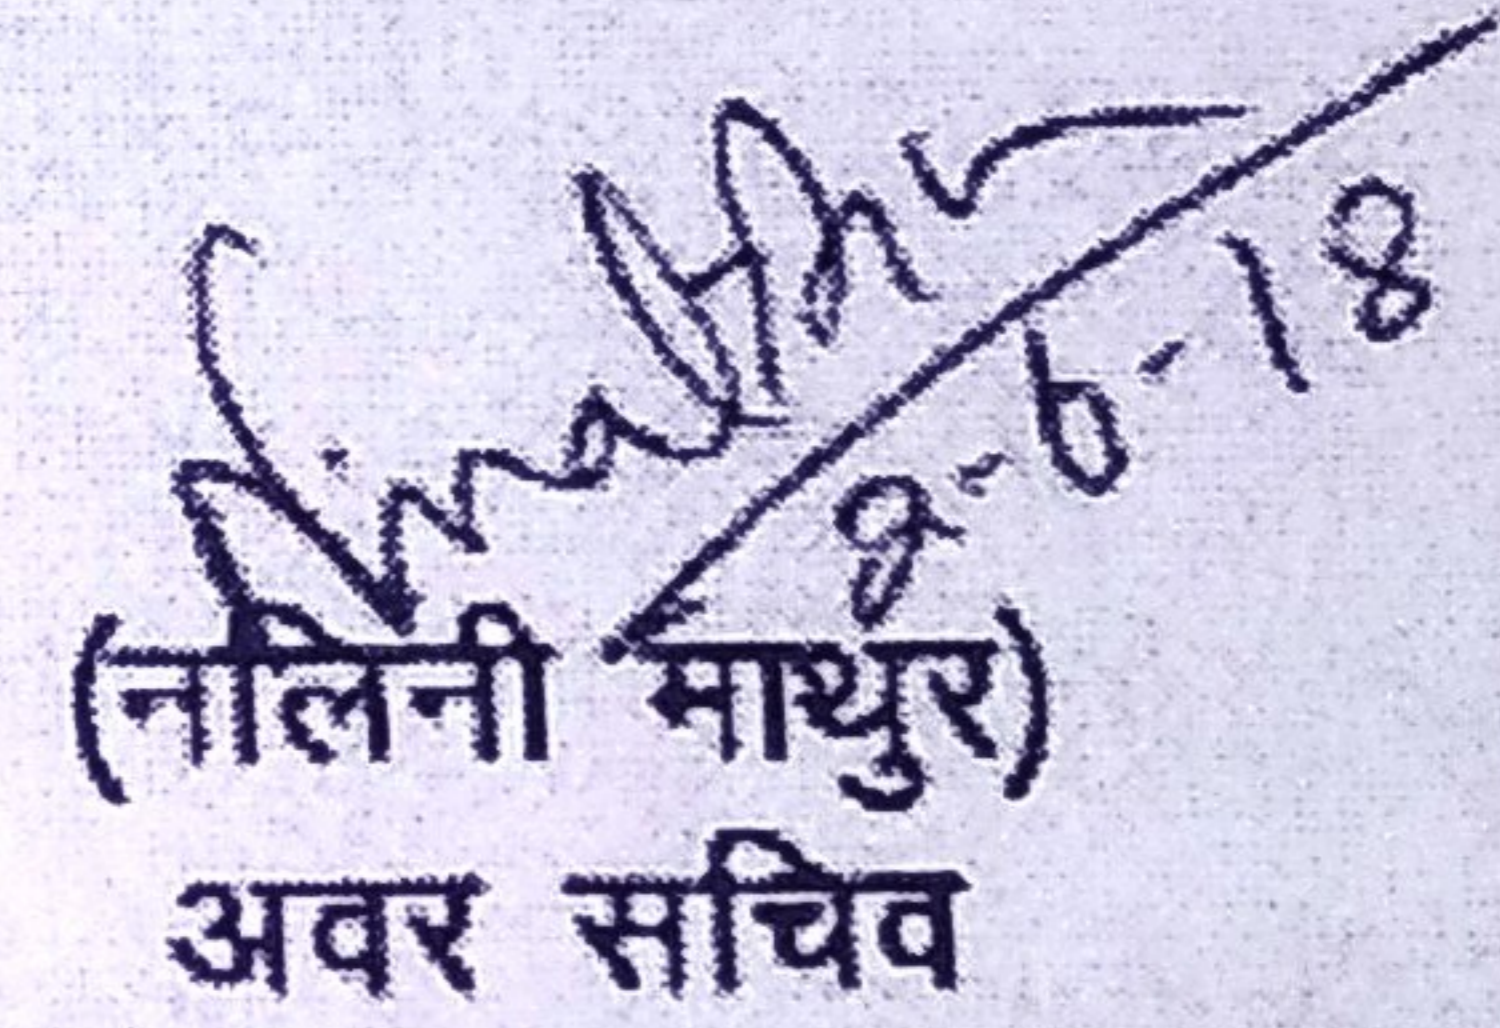 8-6-18
(नलिनी माथुर)
अवर सचिव